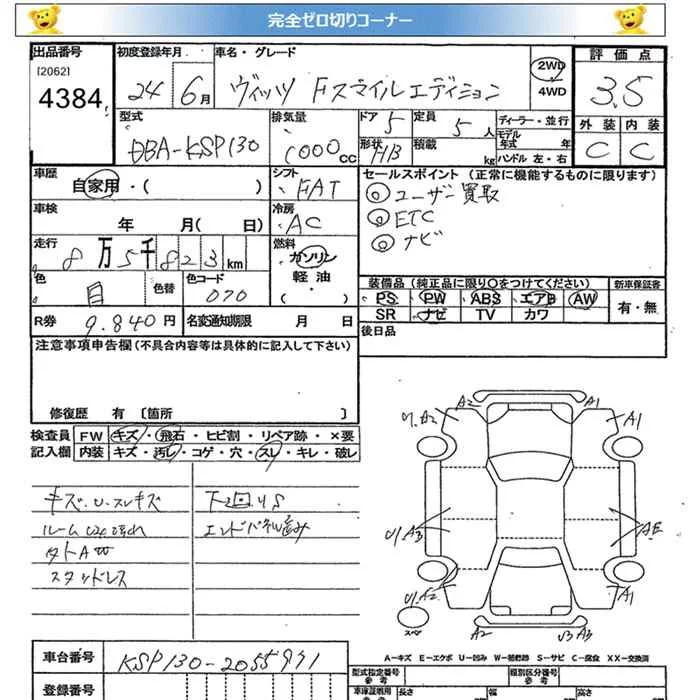 完全ゼロ切りコーナー
出品番号
[2062]
4384
初度登録年月
24 6月
車名・グレード
ヴィッツ Fスマイルエディション
2WD
4WD
評価点
3.5
外装 内装
C C
型式
DBA-KSP130
排気量
1000cc
ドア 5
形状 HB
定員 5人
積載 kg
ディーラー・並行
モデル年式 年
ハンドル 左・右
車歴
自家用・( )
シフト
FAT
車検
年 月( 日)
冷房
AC
走行
8万5千823km
燃料
ガソリン
軽油
・( )
色
白
色替
色コード
070
R券 9.840円
名変通知期限 月 日
セールスポイント(正常に機能するものに限ります)
◎ユーザー買取
◎ETC
◎ナビ
装備品(純正品に限り〇をつけてください)
PS PW ABS エアB AW
SR ナビ TV カワ
新車保証書
有・無
後日品
注意事項申告欄(不具合内容等は具体的に記入して下さい)
修復歴 有〔箇所 〕
検査員記入欄
FW キズ・飛石・ヒビ割・リペア跡・×要
内装 キズ・汚れ・コゲ・穴・スレ・キレ・破レ
キズ・U・スレキズ
下回りS
エンドパネル歪み
スタッドレス
U.A2 A2 A1 A1
U.A3 AE
U.A2 A1
スペア
A2 U3 A3
A-キズ E-エクボ U-凹み W-補修跡 S-サビ C-腐食 XX-交換済
車台番号
KSP130-2055971
登録番号
型式指定番号 参考
類別区分番号 参考
車庫証明用 参考
長さ 幅 高さ